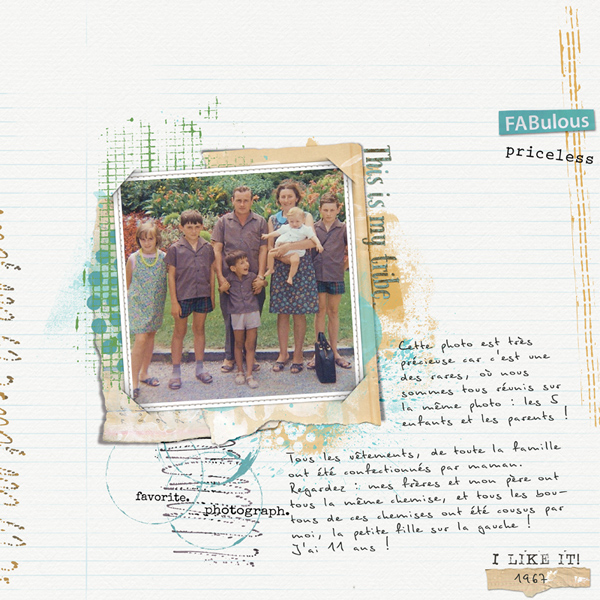 FABulous
priceless
This is my tribe
Cette photo est très
précieuse car c'est une
des rares, où nous
sommes tous réunis sur
la même photo : les 5
enfants et les parents !
Tous les vêtements, de toute la famille
ont été confectionnés par maman.
Regardez : mes frères et mon père ont
tous la même chemise, et tous les bou-
tons de ces chemises ont été cousus par
moi, la petite fille sur la gauche !
J'ai 11 ans !
favorite.
photograph.
I LIKE IT!
1967